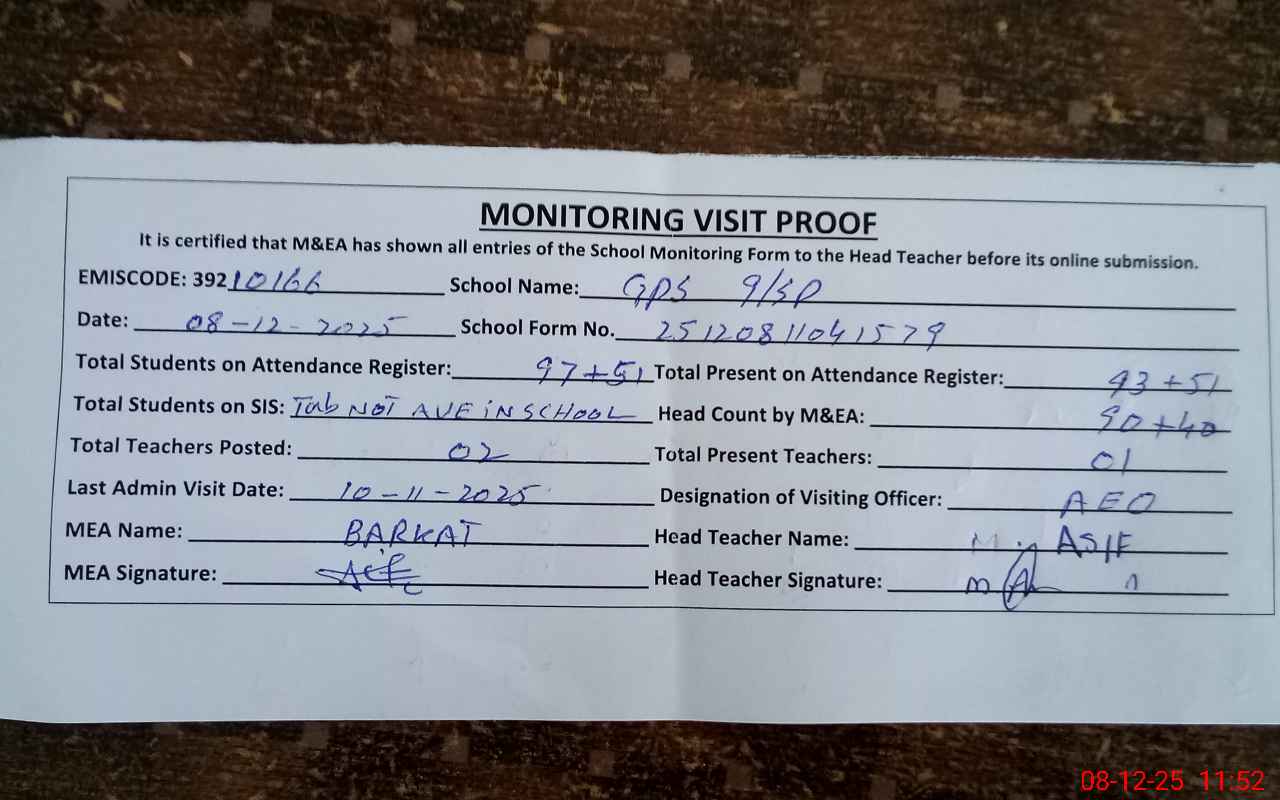 MONITORING VISIT PROOF
It is certified that M&EA has shown all entries of the School Monitoring Form to the Head Teacher before its online submission.
EMISCODE: 39210166 School Name: GPS 9/SP
Date: 08-12-2025 School Form No. 25120811041579
Total Students on Attendance Register: 97+51 Total Present on Attendance Register: 93+51
Total Students on SIS: Tab NOT AVE iN SCHOOL Head Count by M&EA: 90+40
Total Teachers Posted: 02 Total Present Teachers: 01
Last Admin Visit Date: 10-11-2025 Designation of Visiting Officer: AEO
MEA Name: BARKAT Head Teacher Name: M. ASIF
MEA Signature: Head Teacher Signature:
08-12-25 11:52